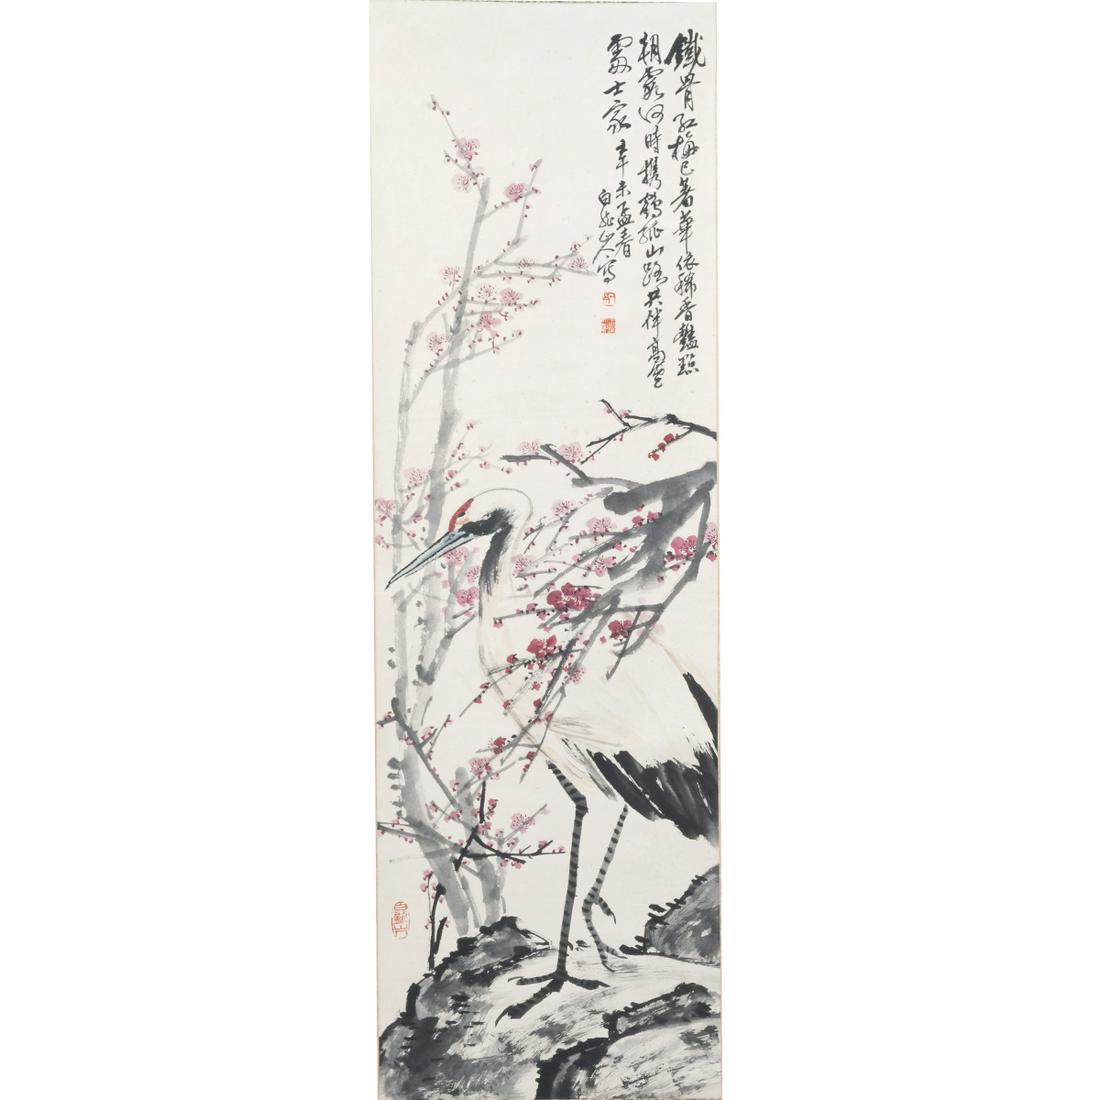 鐵骨紅梅已著華依稀香豔點
朝霞何時攜鶴孤山路共伴高
處士家 辛未孟春
白龍山人寫